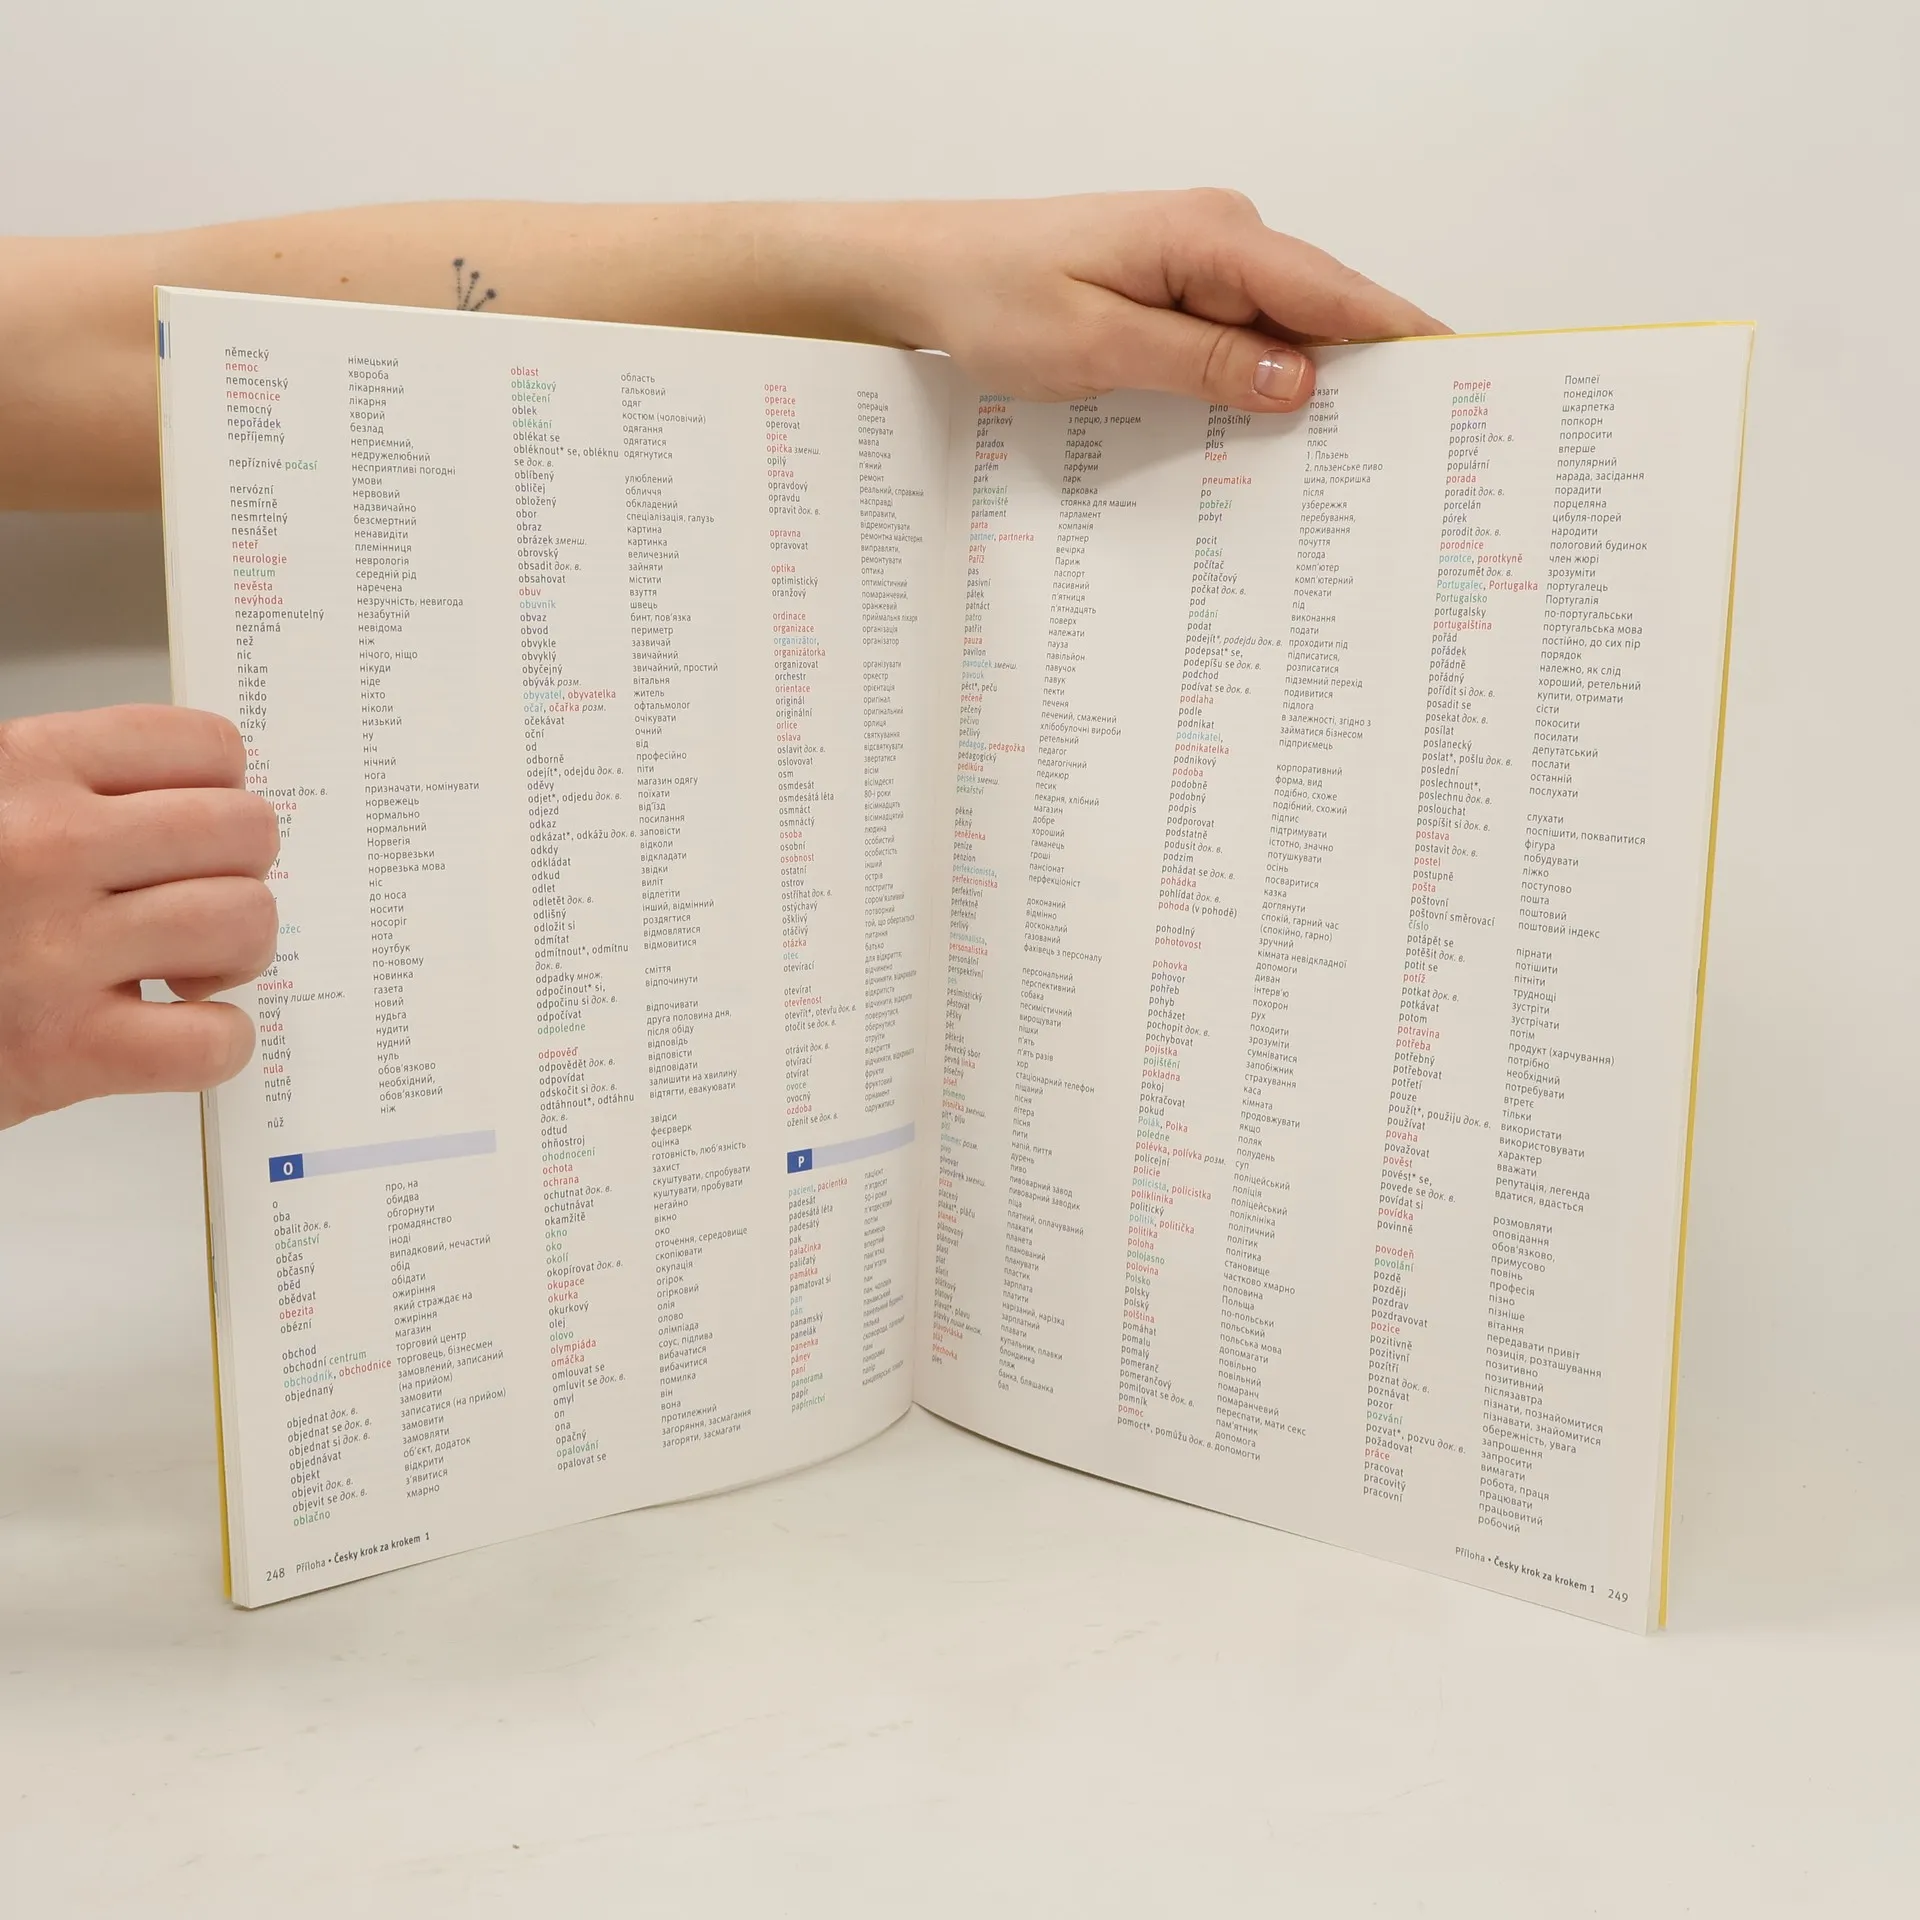 německý німецький
nemoc хвороба
nemocenský лікарняний
nemocnice лікарня
nemocný хворий
nepořádek безлад
nepříjemný неприємний,
недружелюбний
nepříznivé počasí несприятливі погодні
умови
nervózní нервовий
nesmírně надзвичайно
nesmrtelný безсмертний
nesnášet ненавидіти
neteř племінниця
neurologie неврологія
neutrum середній рід
nevěsta наречена
nevýhoda незручність, невигода
nezapomenutelný незабутній
neznámá невідома
než ніж
nic нічого, ніщо
nikam нікуди
nikde ніде
nikdo ніхто
nikdy ніколи
nízký низький
ну
ніч
нічний
нога
призначати, номінувати
норвежець
нормально
нормальний
Норвегія
по-норвезьки
норвезька мова
ніс
до носа
носити
носоріг
нота
ноутбук
по-новому
novinka новинка
noviny лише множ. газета
nový новий
nuda нудьга
nudit нудити
nudný нудний
nula нуль
nutně обов'язково
nutný необхідний,
обов'язковий
nůž ніж
O
o про, на
oba обидва
obalit док. в. обгорнути
občanství громадянство
občas іноді
občasný випадковий, нечастий
oběd обід
obědvat обідати
obezita ожиріння
obézní який страждає на
ожиріння
obchod магазин
obchodní centrum торговий центр
obchodník, obchodnice торговець, бізнесмен
objednaný замовлений, записаний
(на прийом)
objednat док. в. замовити
objednat se док. в. записатися (на прийом)
objednat si док. в. замовити
objednávat замовляти
objekt об'єкт, додаток
objevit док. в. відкрити
objevit se док. в. з'явитися
oblačno хмарно
oblast область
oblázkový гальковий
oblečení одяг
oblek костюм (чоловічий)
oblékání одягання
oblékat se одягатися
obléknout* se, obléknu одягнутися
se док. в.
oblíbený улюблений
obličej обличчя
obložený обкладений
obor спеціалізація, галузь
obraz картина
obrázek зменш. картинка
obrovský величезний
obsadit док. в. зайняти
obsahovat містити
obuv взуття
obuvník швець
obvaz бинт, пов'язка
obvod периметр
obvykle зазвичай
obvyklý звичайний
obyčejný звичайний, простий
obývák розм. вітальня
obyvatel, obyvatelka житель
očař, očařka розм. офтальмолог
očekávat очікувати
oční очний
od від
odborně професійно
odejít*, odejdu док. в. піти
oděvy магазин одягу
odjet*, odjedu док. в. поїхати
odjezd від'їзд
odkaz посилання
odkázat*, odkážu док. в. заповісти
odkdy відколи
odkládat відкладати
odkud звідки
odlet виліт
odletět док. в. відлетіти
odlišný інший, відмінний
odložit si роздягтися
odmítat відмовлятися
odmítnout*, odmítnu відмовитися
док. в.
odpadky множ. сміття
odpočinout* si, відпочинути
odpočinu si док. в.
odpočívat відпочивати
odpoledne друга половина дня,
після обіду
odpověď відповідь
odpovědět док. в. відповісти
odpovídat відповідати
odskočit si док. в. залишити на хвилину
odtáhnout*, odtáhnu відтягти, евакуювати
док. в.
odtud звідси
ohňostroj феєрверк
ohodnocení оцінка
ochota готовність, люб'язність
ochrana захист
ochutnat док. в. скуштувати, спробувати
ochutnávat куштувати, пробувати
okamžitě негайно
okno вікно
oko око
okolí оточення, середовище
okopírovat док. в. скопіювати
okupace окупація
okurka огірок
okurkový огірковий
olej олія
olovo олово
olympiáda олімпіада
omáčka соус, підлива
omlouvat se вибачатися
omluvit se док. в. вибачитися
omyl помилка
on він
ona вона
opačný протилежний
opalování загоряння, засмагання
opalovat se загоряти, засмагати
opera опера
operace операція
opereta оперета
operovat оперувати
opice мавпа
opička зменш. мавпочка
opilý п'яний
oprava ремонт
opravdový реальний, справжній
opravdu насправді
opravit док. в. виправити,
відремонтувати
opravna ремонтна майстерня
opravovat виправляти,
ремонтувати
optika оптика
optimistický оптимістичний
oranžový помаранчевий,
оранжевий
ordinace приймальня лікаря
organizace організація
organizátor, організатор
organizátorka
organizovat організувати
orchestr оркестр
orientace орієнтація
originál оригінал
originální оригінальний
orlice орлиця
oslava святкування
oslavit док. в. відсвяткувати
oslovovat звертатися
osm вісім
osmdesát вісімдесят
osmdesátá léta 80-і роки
osmnáct вісімнадцять
osmnáctý вісімнадцятий
osoba людина
osobní особистий
osobnost особистість
ostatní інший
ostrov острів
ostříhat док. в. постригти
ostýchavý сором'язливий
ošklivý потворний
otáčivý той, що обертається
otázka питання
otec батько
otevírací для відкриття;
відчинено
otevírat відчиняти, відкривати
otevřenost відкритість
otevřít*, otevřu док. в. відчинити, відкрити
otočit se док. в. повернутися,
обернутися
otrávit док. в. отруїти
otvírací відкриття
otvírat відчиняти, відкривати
ovoce фрукти
ovocný фруктовий
ozdoba орнамент
oženit se док. в. одружитися
P
pacient, pacientka пацієнт
padesát п'ятдесят
padesátá léta 50-і роки
padesátý п'ятдесятий
pak потім
palačinka млинець
paličatý впертий
památka пам'ятка
pamatovat si пам'ятати
pan пан
pán пан, чоловік
panamský панамський
panelák панельний будинок
panenka лялька
pánev
paní пані
panorama панорама
papír папір
papírnictví канцелярські товари
248 Příloha • Česky krok za krokem 1
paprika перець
paprikový з перцю, з перцем
pár пара
paradox парадокс
Paraguay Парагвай
parfém парфуми
park парк
parkování парковка
parkoviště стоянка для машин
parlament парламент
parta компанія
partner, partnerka партнер
party вечірка
Paříž Париж
pas паспорт
pasivní пасивний
pátek п'ятниця
patnáct п'ятнадцять
patro поверх
patřit належати
pauza пауза
pavilon павільйон
pavouček зменш. павучок
pavouk павук
péct*, peču пекти
pečeně печеня
pečený печений, смажений
pečivo хлібобулочні вироби
pečlivý ретельний
pedagog, pedagožka педагог
pedagogický педагогічний
pedikúra педикюр
pejsek зменш. песик
pekařství пекарня, хлібний
магазин
pěkně добре
pěkný хороший
peněženka гаманець
peníze гроші
penzion пансіонат
perfekcionista, перфекціоніст
perfekcionistka
perfektivní доконаний
perfektně відмінно
perfektní досконалий
perlivý газований
personalista, фахівець з персоналу
personalistka
personální персональний
perspektivní перспективний
pes собака
pesimistický песимістичний
pěstovat вирощувати
pěšky пішки
pět п'ять
pětkrát п'ять разів
pěvecký sbor хор
pevná linka стаціонарний телефон
písečný піщаний
píseň пісня
písmeno літера
písnička зменш. пісня
pít*, piju пити
pití напій, пиття
pitomec розм. дурень
pivo пиво
pivovar пивоварний завод
pivovárek зменш. пивоварний заводик
pizza піца
placený платний, оплачуваний
plakat*, pláču плакати
planeta планета
plánovaný планований
plánovat планувати
plast пластик
plat зарплата
platit платити
plátkový нарізаний, нарізка
platový зарплатний
plavat*, plavu плавати
plavky лише множ. купальник, плавки
plavovláska блондинка
pláž пляж
plechovka банка, бляшанка
ples бал
plno повно
plnoštíhlý повний
plný повний
plus плюс
Plzeň 1. Пльзень
2. пльзенське пиво
pneumatika шина, покришка
po після
pobřeží узбережжя
pobyt перебування,
проживання
pocit почуття
počasí погода
počítač комп'ютер
počítačový комп'ютерний
počkat док. в. почекати
pod під
podání виконання
podat подати
podejít*, podejdu док. в. проходити під
podepsat* se, підписатися,
podepíšu se док. в. розписатися
podchod підземний перехід
podívat se док. в. подивитися
podlaha підлога
podle в залежності, згідно з
podnikat займатися бізнесом
podnikatel, підприємець
podnikatelka
podnikový корпоративний
podoba форма, вид
podobně подібно, схоже
podobný подібний, схожий
podpis підпис
podporovat підтримувати
podstatně істотно, значно
podusit док. в. потушкувати
podzim осінь
pohádat se док. в. посваритися
pohádka казка
pohlídat док. в. доглянути
pohoda (v pohodě) спокій, гарний час
(спокійно, гарно)
pohodlný зручний
pohotovost кімната невідкладної
допомоги
pohovka диван
pohovor інтерв'ю
pohřeb похорон
pohyb рух
pocházet походити
pochopit док. в. зрозуміти
pochybovat сумніватися
pojistka запобіжник
pojištění страхування
pokladna каса
pokoj кімната
pokračovat продовжувати
pokud якщо
Polák, Polka поляк
poledne полудень
polévka, polívka розм. суп
policejní поліцейський
policie поліція
policista, policistka поліцейський
poliklinika поліклініка
politický політичний
politik, politička політик
politika політика
poloha становище
polojasno частково хмарно
polovina половина
Polsko Польща
polsky по-польськи
polský польський
polština польська мова
pomáhat допомагати
pomalu повільно
pomalý повільний
pomeranč помаранч
pomerančový помаранчевий
pomilovat se док. в. переспати, мати секс
pomník пам'ятник
pomoc допомога
pomoct*, pomůžu док. в. допомогти
Pompeje Помпеї
pondělí понеділок
ponožka шкарпетка
popkorn попкорн
poprosit док. в. попросити
poprvé вперше
populární популярний
porada нарада, засідання
poradit док. в. порадити
porcelán порцеляна
pórek цибуля-порей
porodit док. в. народити
porodnice пологовий будинок
porotce, porotkyně член жюрі
porozumět док. в. зрозуміти
Portugalec, Portugalka португалець
Portugalsko Португалія
portugalsky по-португальськи
portugalština португальська мова
pořád постійно, до сих пір
pořádek порядок
pořádně належно, як слід
pořádný хороший, ретельний
pořídit si док. в. купити, отримати
posadit se сісти
posekat док. в. покосити
posílat посилати
poslanecký депутатський
poslat*, pošlu док. в. послати
poslední останній
poslechnout*, послухати
poslechnu док. в.
poslouchat слухати
pospíšit si док. в. поспішити, поквапитися
postava фігура
postavit док. в. побудувати
postel ліжко
postupně поступово
pošta пошта
poštovní поштовий
poštovní směrovací поштовий індекс
číslo
potápět se пірнати
potěšit док. в. потішити
potit se пітніти
potíž труднощі
potkat док. в. зустріти
potkávat зустрічати
potom потім
potravina продукт (харчування)
potřeba потрібно
potřebný необхідний
potřebovat потребувати
potřetí втретє
pouze тільки
použít*, použiju док. в. використати
používat використовувати
povaha характер
považovat вважати
pověst репутація, легенда
pověst* se, вдатися, вдасться
povede se док. в.
povídat si розмовляти
povídka оповідання
povinně обов'язково,
примусово
povodeň повінь
povolání професія
pozdě пізно
později пізніше
pozdrav вітання
pozdravovat передавати привіт
pozice позиція, розташування
pozitivně позитивно
pozitivní позитивний
pozítří післязавтра
poznat док. в. пізнати, познайомитися
poznávat пізнавати, знайомитися
pozor обережність, увага
pozvání запрошення
pozvat*, pozvu док. в. запросити
požadovat вимагати
práce робота, праця
pracovat працювати
pracovitý працьовитий
pracovní робочий
Příloha • Česky krok za krokem 1 249